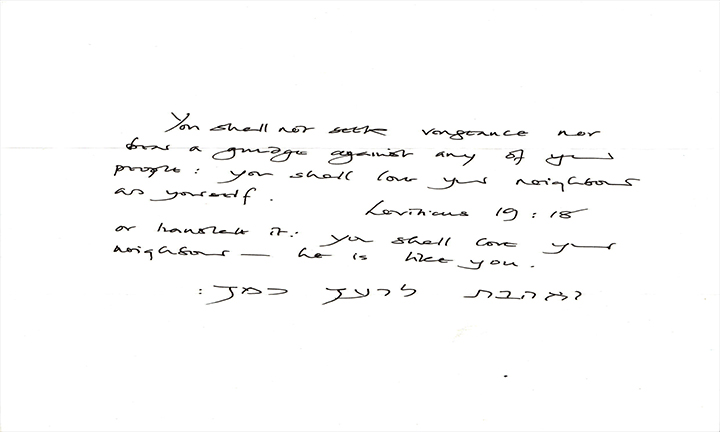 You shall not seek vengeance nor
bear a grudge against any of your
people: you shall love your neighbour
as yourself. Leviticus 19:18
or translate it: you shall love your
neighbour — he is like you.
ואהבת לרעך כמך: